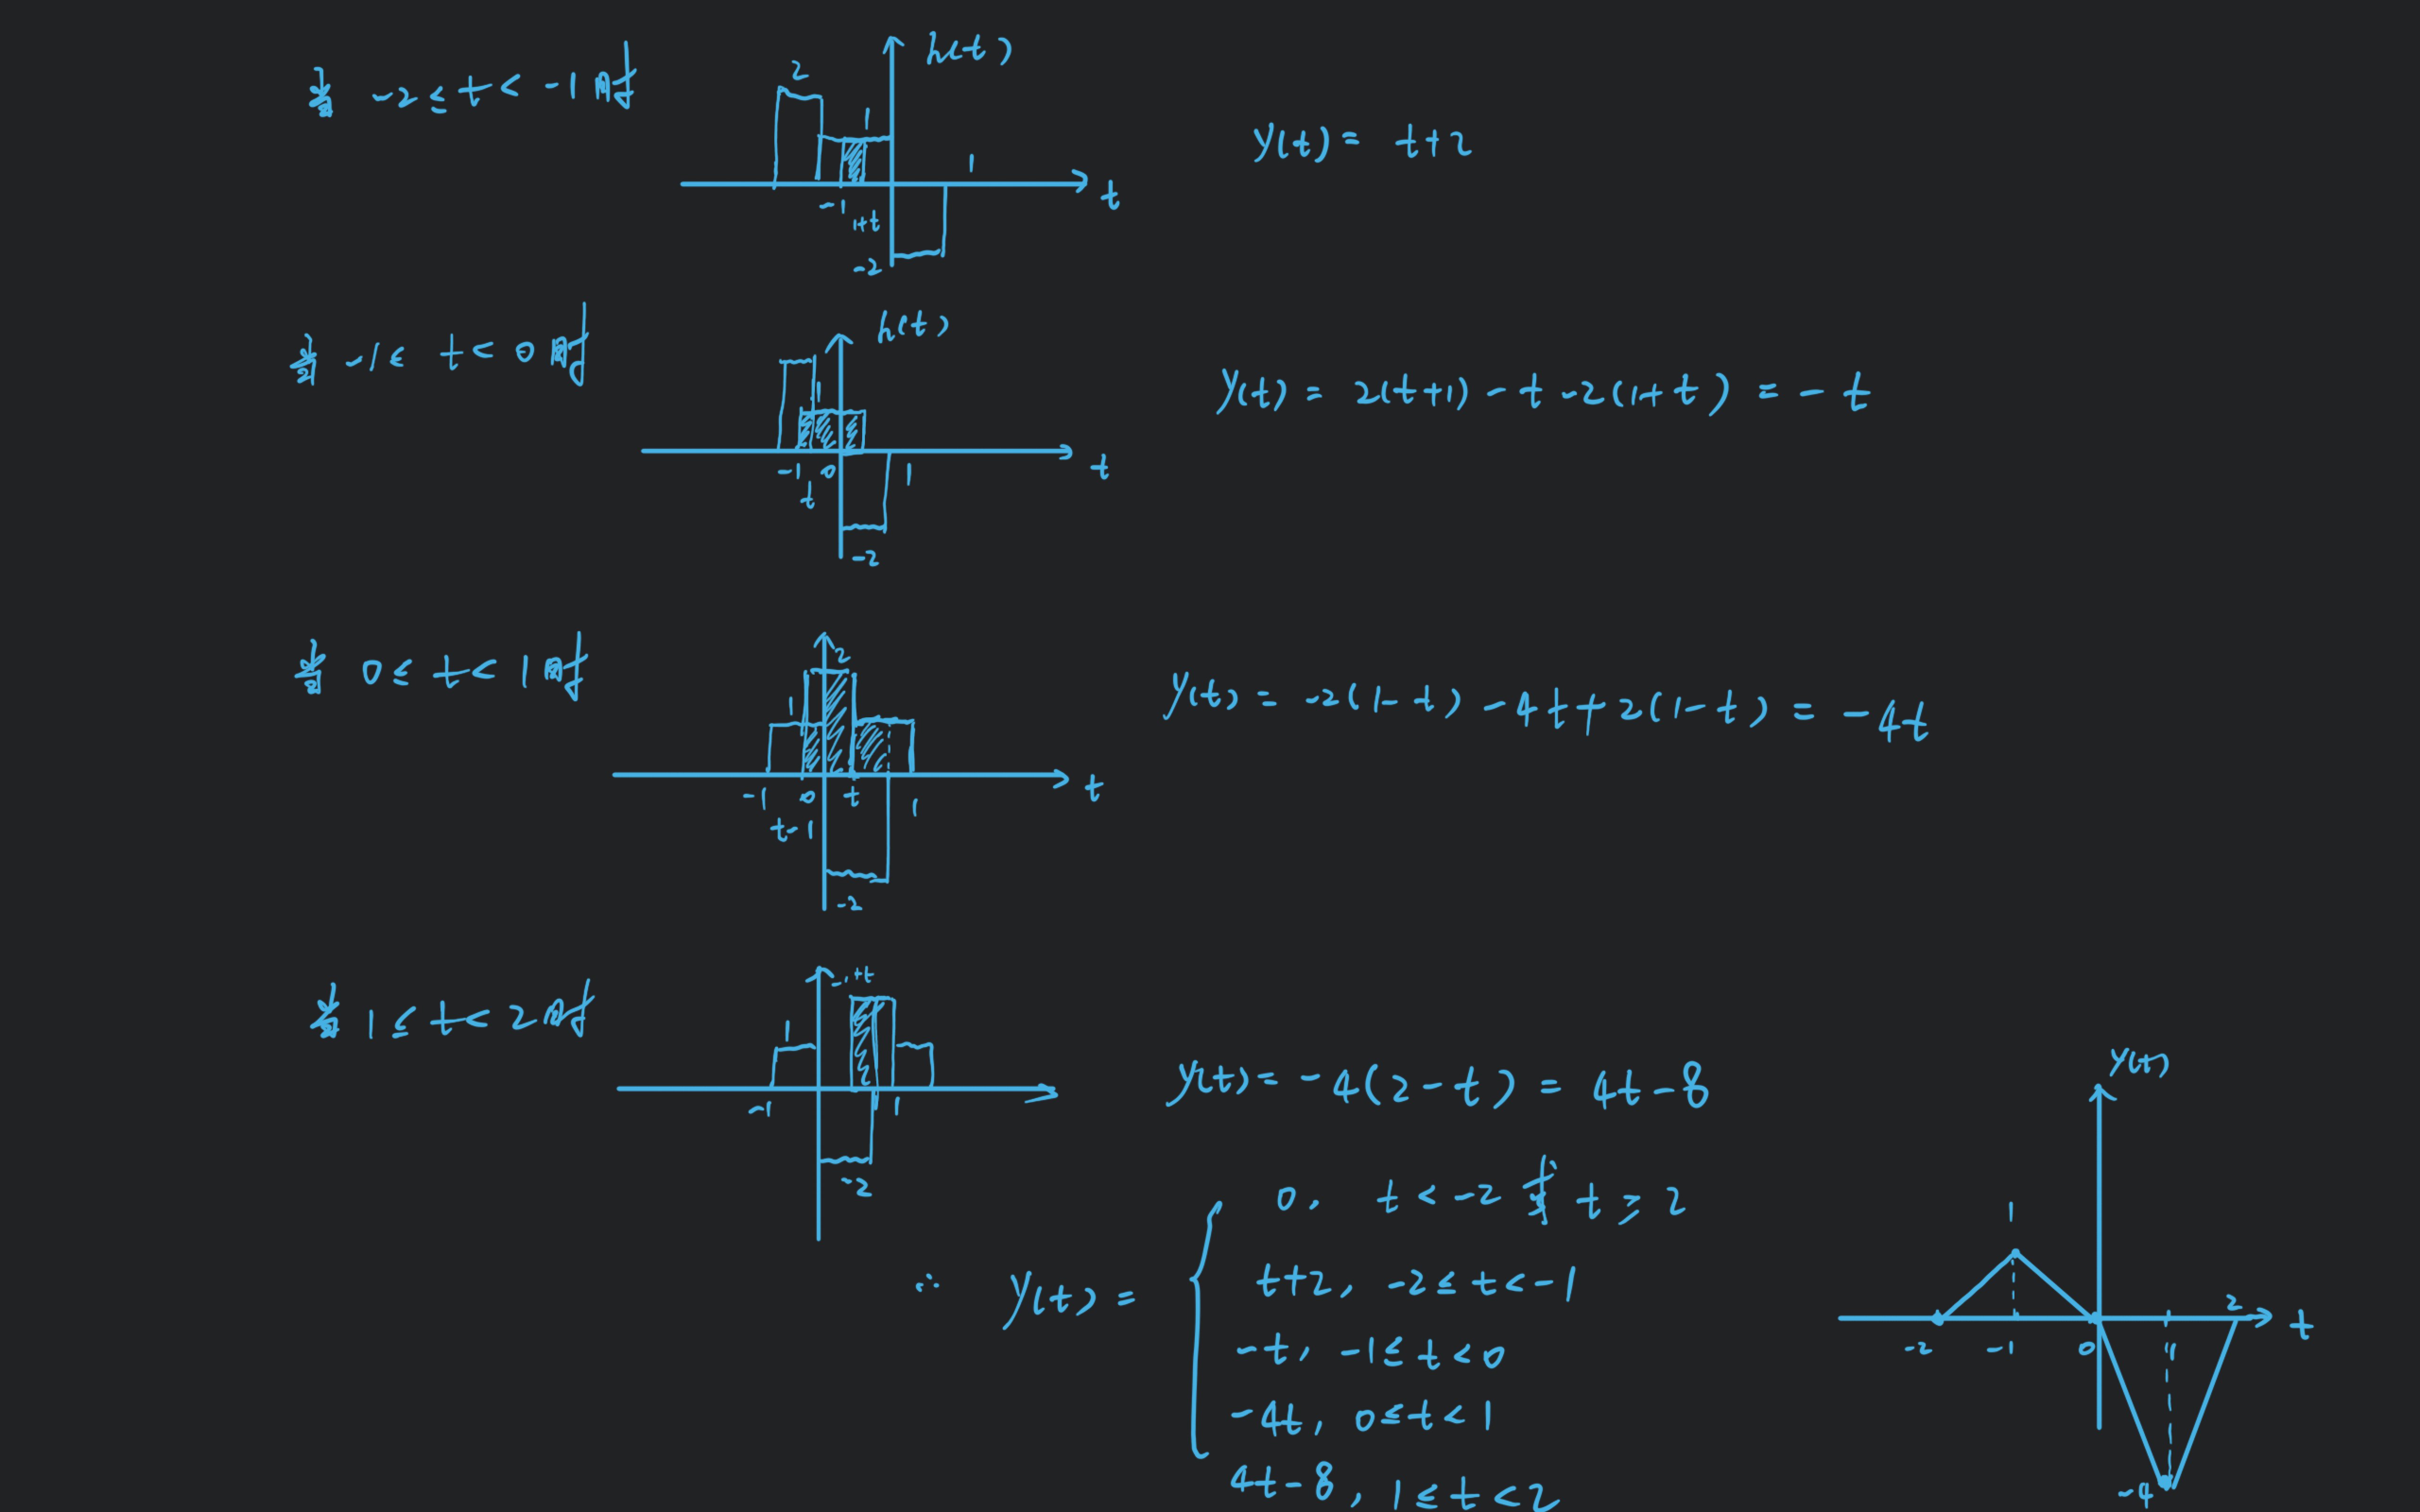 当 -2 ≤ t < -1 时
h(t)
2
1
1
t
-1
1+t
-2
y(t) = t+2
当 -1 ≤ t < 0 时
h(t)
1
-1 0
1
t
t
-2
y(t) = 2(t+1) - t - 2(1+t) = - t
当 0 ≤ t < 1 时
2
1
-1 0 t
1
t
t-1
-2
y(t) = -2(1-t) - 4t + 2(1-t) = -4t
当 1 ≤ t < 2 时
-1+t
1
-1
1
-2
y(t) = -4(2-t) = 4t-8
∴ y(t) =
0, t < -2 或 t ≥ 2
t+2, -2 ≤ t < -1
-t, -1 ≤ t < 0
-4t, 0 ≤ t < 1
4t-8, 1 ≤ t < 2
y(t)
1
2
t
-2 -1 0 1
-4